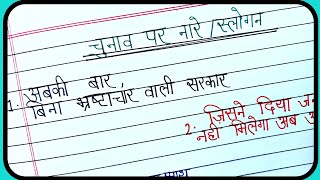 चुनाव पर नारे/स्लोगन
1. अबकी बार,
बिना भ्रष्टाचार वाली सरकार
2. जिसने दिया
नहीं मिलेगा अब